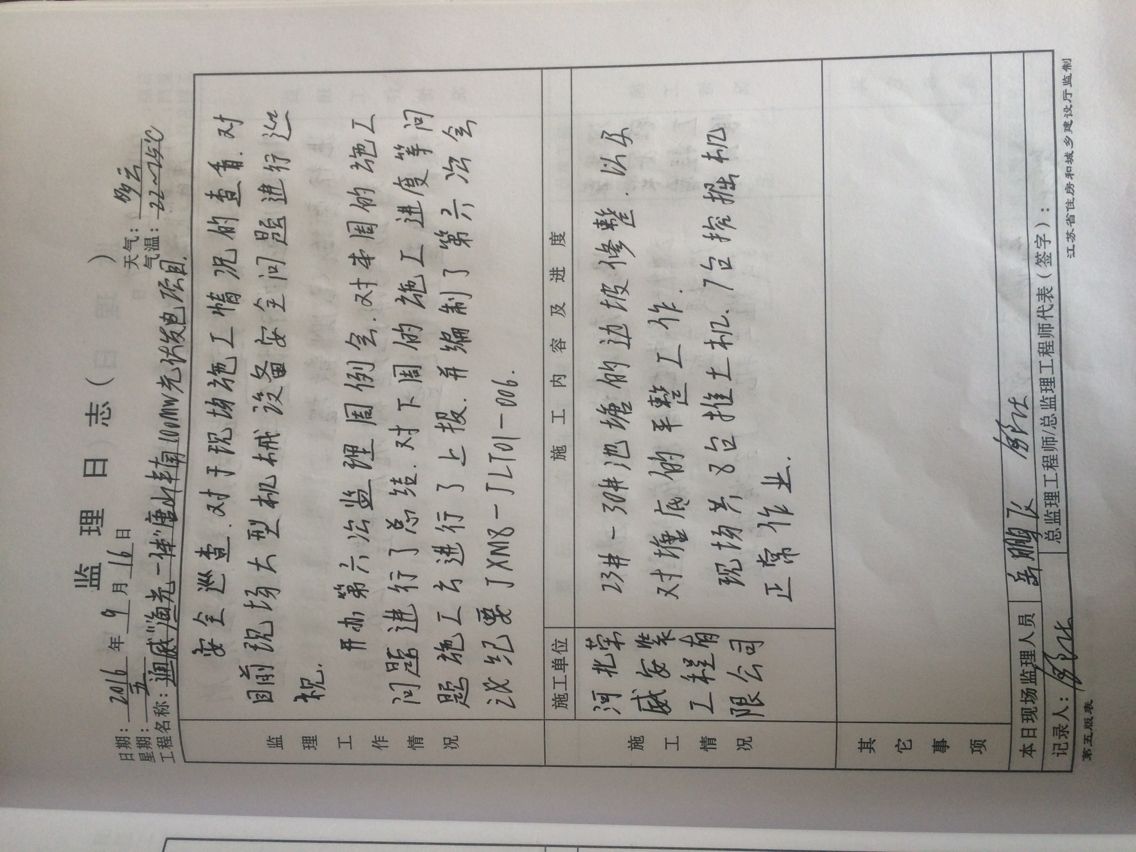 监理日志（日 ）
日期：2016年9月16日 天气：多云
星期：五 气温：22~25℃
工程名称：通威"渔光一体"唐山丰南100MW光伏发电项目.
监理工作情况
安全巡查.对于现场施工情况的查看.对
目前现场大型机械设备安全问题进行巡
视.
开办第六次监理周例会.对本周的施工
问题进行了总结.对下周的施工进度等问
题施工去进行了上报.并编制了第六次会
议纪要JXM8-JLT01-006.
施工情况
施工单位 施工内容及进度
河北荣
威安装
工程有
限公司
23#-30#池塘的边坡修整.以及
对塘底的平整工作.
现场共8台推土机.7台挖掘机
正常作业.
其它事项
本日现场监理人员 岳鹏飞
记录人： 总监理工程师/总监理工程师代表（签字）：
第五版表 江苏省住房和城乡建设厅监制